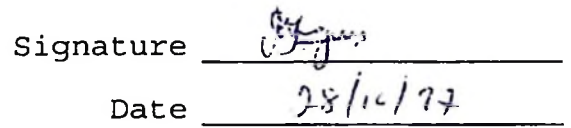 Signature
Date 28/10/97